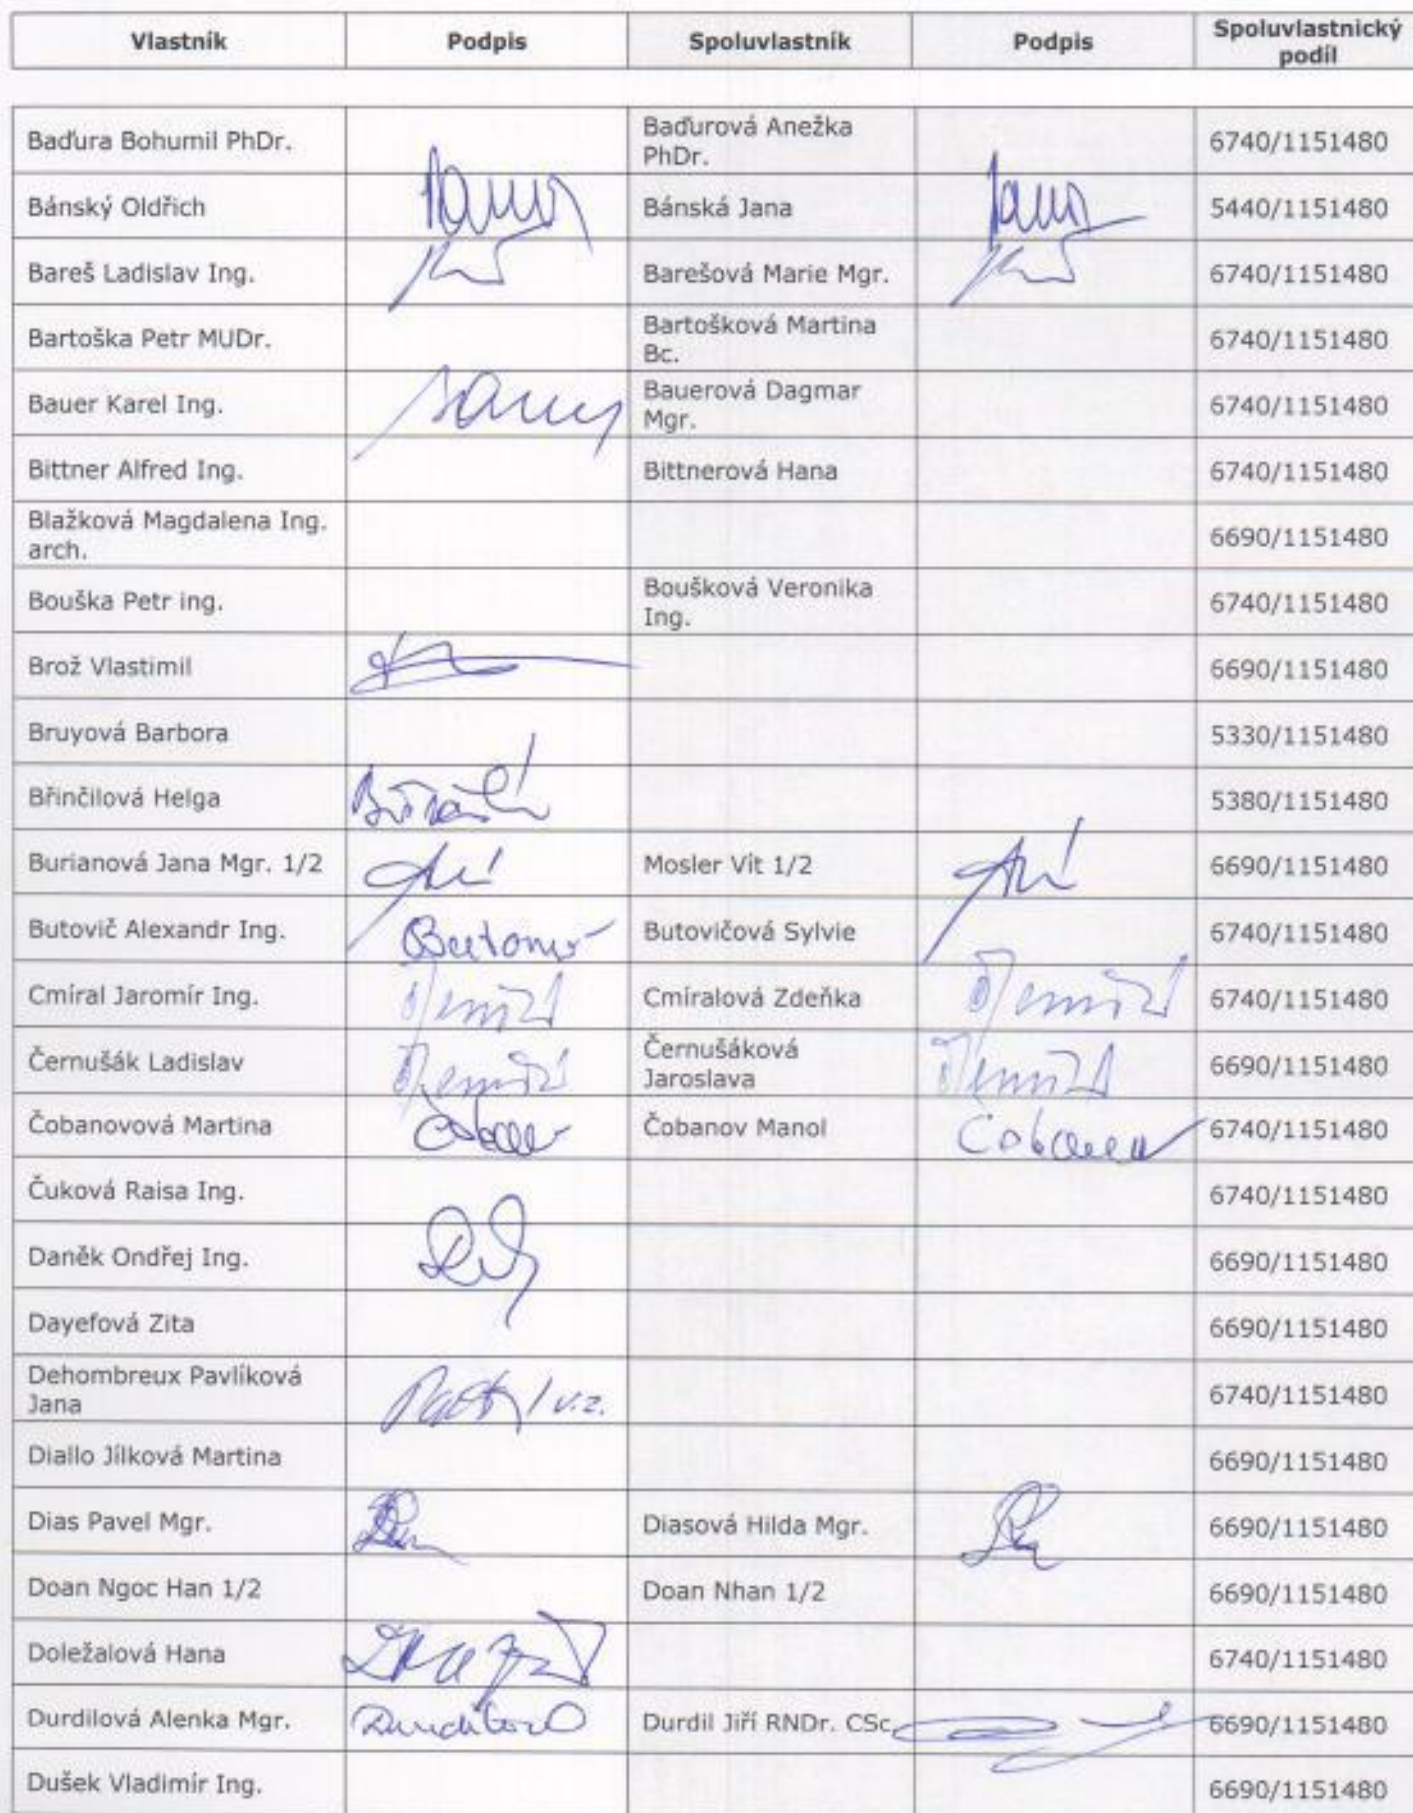 Vlastník Podpis Spoluvlastník Podpis Spoluvlastnický
podíl
Baďura Bohumil PhDr. Baďurová Anežka
PhDr. 6740/1151480
Bánský Oldřich Bánská Jana 5440/1151480
Bareš Ladislav Ing. Barešová Marie Mgr. 6740/1151480
Bartoška Petr MUDr. Bartošková Martina
Bc. 6740/1151480
Bauer Karel Ing. Bauerová Dagmar
Mgr. 6740/1151480
Bittner Alfred Ing. Bittnerová Hana 6740/1151480
Blažková Magdalena Ing.
arch. 6690/1151480
Bouška Petr ing. Boušková Veronika
Ing. 6740/1151480
Brož Vlastimil 6690/1151480
Bruyová Barbora 5330/1151480
Břinčilová Helga 5380/1151480
Burianová Jana Mgr. 1/2 Mosler Vít 1/2 6690/1151480
Butovič Alexandr Ing. Butovičová Sylvie 6740/1151480
Cmíral Jaromír Ing. Cmíralová Zdeňka 6740/1151480
Černušák Ladislav Černušáková
Jaroslava 6690/1151480
Čobanovová Martina Čobanov Manol 6740/1151480
Čuková Raisa Ing. 6740/1151480
Daněk Ondřej Ing. 6690/1151480
Dayefová Zita 6690/1151480
Dehombreux Pavlíková
Jana v.z. 6740/1151480
Diallo Jílková Martina 6690/1151480
Dias Pavel Mgr. Diasová Hilda Mgr. 6690/1151480
Doan Ngoc Han 1/2 Doan Nhan 1/2 6690/1151480
Doležalová Hana 6740/1151480
Durdilová Alenka Mgr. Durdil Jiří RNDr. CSc. 6690/1151480
Dušek Vladimír Ing. 6690/1151480